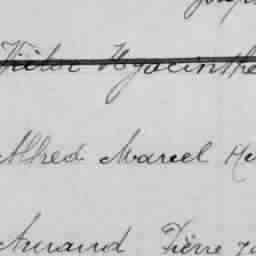 Victor Hyacinthe
Alfred Marcel
Amand Pierre